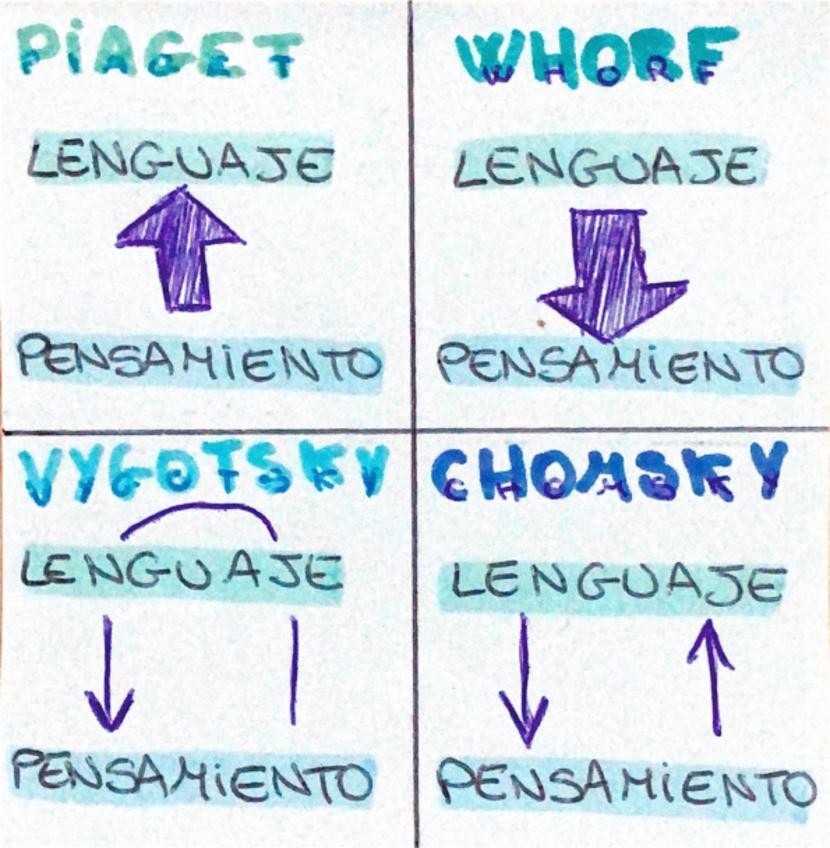 PiAGET
LENGUAJE
PENSAMiENTO
WHORF
LENGUAJE
PENSAMiENTO
VYGOTSKY
LENGUAJE
PENSAMiENTO
CHOMSKY
LENGUAJE
PENSAMiENTO